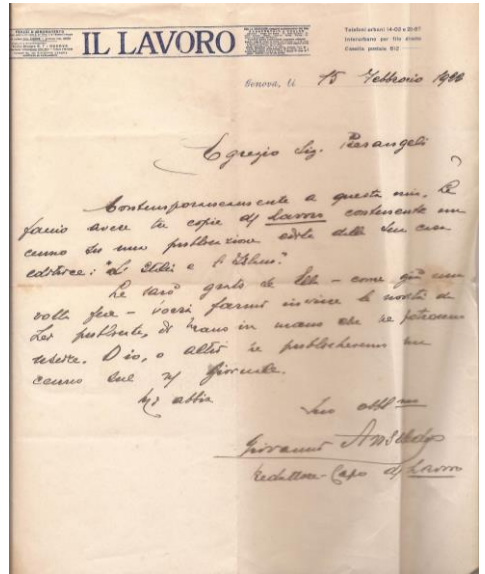 IL LAVORO
Telefoni urbani 14-02 e 21-87
Interurbano per filo diretto
Casella postale 612
Genova, li 15 Febbraio
Egregio Sig. Pierangeli
Contemporaneamente a questa mia, Le
faccio avere tre copie del Lavoro contenente un
cenno su una pubblicazione edita dalla Sua casa
editrice:
Le sarò grato se Ella – come già una
volta fece – vorrà farmi inviare le novità da
Lei pubblicate, di mano in mano che ne potranno
uscire. O io, o altri ne pubblicheremo un
cenno sul Giornale.
Mi abbia
Suo obbl mo
Giovanni Ansaldo
Redattore-Capo del Lavoro